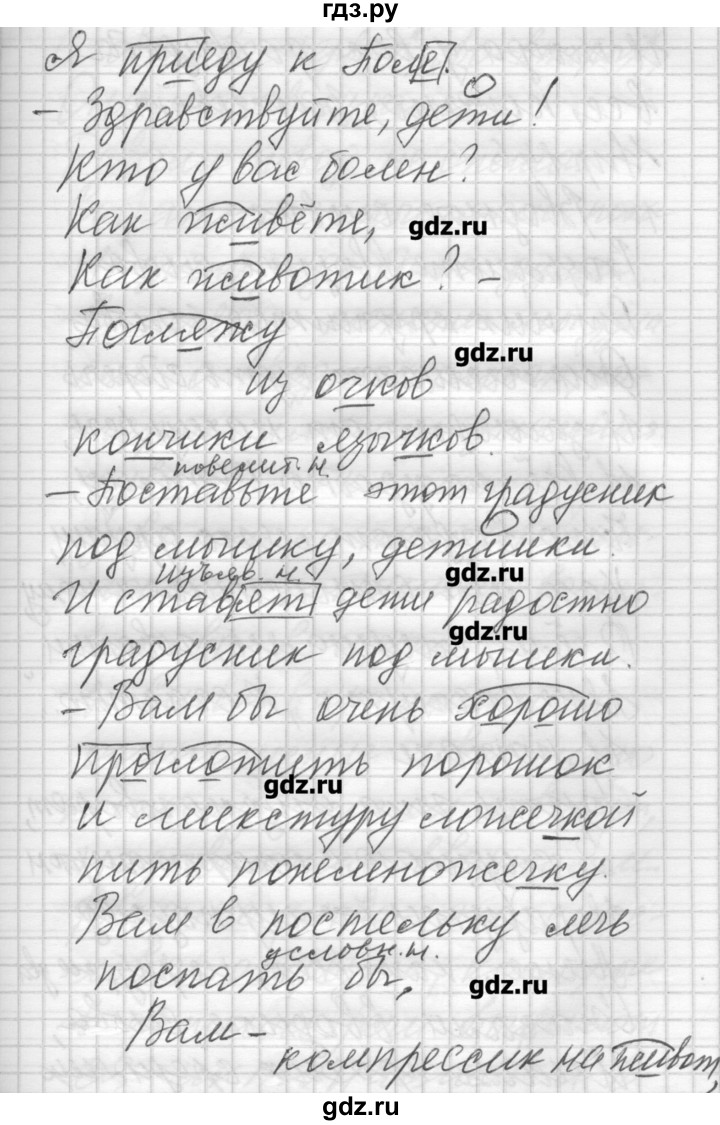 гдз.ру
Я приеду к Поле.
– Здравствуйте, дети!
Кто у вас болен?
Как живёте,
gdz.ru
Как животик? –
Погляжу
gdz.ru
из очков
кончики язычков.
повелит. н.
– Поставьте этот градусник
под мышку, детишки.
изъяв. н.
gdz.ru
И ставят дети радостно
gdz.ru
градусник под мышки.
– Вам бы очень хорошо
проглотить порошок
gdz.ru
и микстуру ложечкой
пить понемножечку.
Вам в постельку лечь
условн. н.
поспать бы,
gdz.ru
Вам –
компрессик на живот,
gdz.ru